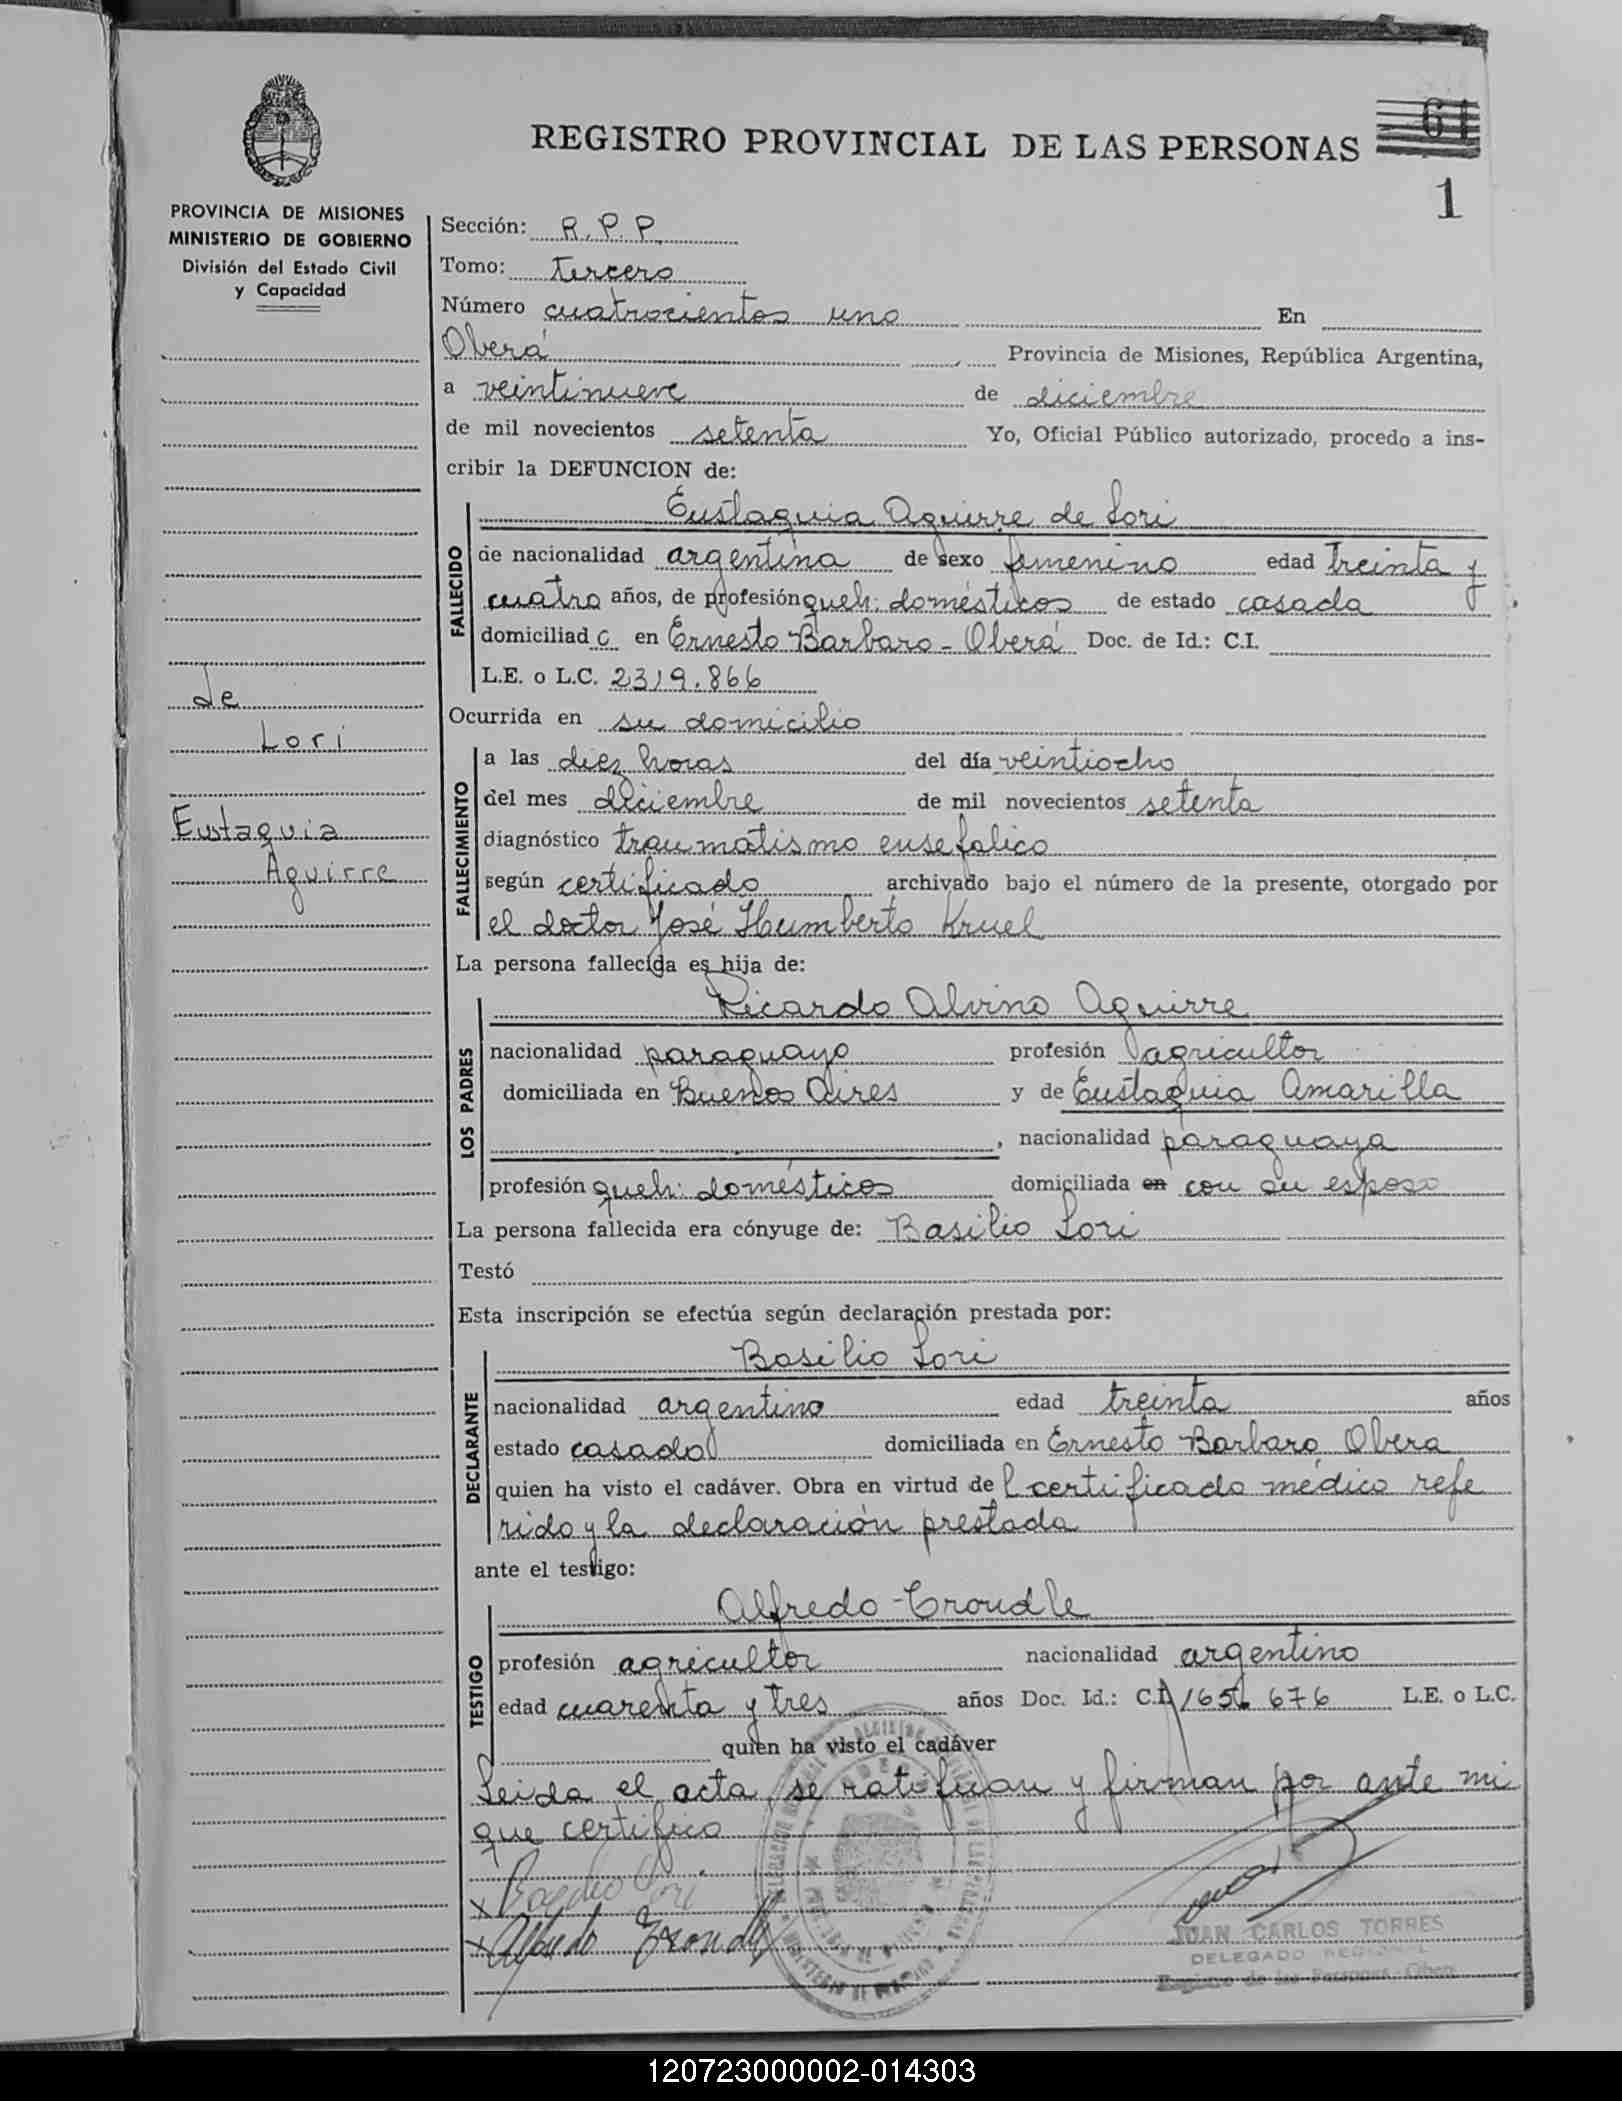 REGISTRO PROVINCIAL DE LAS PERSONAS
61
1
PROVINCIA DE MISIONES
MINISTERIO DE GOBIERNO
División del Estado Civil
y Capacidad
de
Lori
Eustaquia
Aguirre
Sección: R.P.P.
Tomo: tercero
Número cuatrocientos uno En
Oberá Provincia de Misiones, República Argentina,
a veintinueve de diciembre
de mil novecientos setenta Yo, Oficial Público autorizado, procedo a ins-
cribir la DEFUNCION de:
Eustaquia Aguirre de Lori
FALLECIDO
de nacionalidad argentina de sexo femenino edad treinta y
cuatro años, de profesión queh: domésticos de estado casada
domiciliad en Ernesto Barbaro - Oberá Doc. de Id.: C.I.
L.E. o L.C. 2319.866
Ocurrida en su domicilio
FALLECIMIENTO
a las diez horas del día veintiocho
del mes diciembre de mil novecientos setenta
diagnóstico traumatismo ensefalico
según certificado archivado bajo el número de la presente, otorgado por
el doctor José Humberto Kruel
La persona fallecida es hija de:
LOS PADRES
Ricardo Alvino Aguirre
nacionalidad paraguayo profesión agricultor
domiciliada en Buenos Aires y de Eustaquia Amarilla
, nacionalidad paraguaya
profesión queh: domésticos domiciliada en con su esposo
La persona fallecida era cónyuge de: Basilio Lori
Testó
Esta inscripción se efectúa según declaración prestada por:
DECLARANTE
Basilio Lori
nacionalidad argentino edad treinta años
estado casado domiciliada en Ernesto Barbaro Obera
quien ha visto el cadáver. Obra en virtud del certificado médico refe
rido y la declaración prestada
ante el testigo:
TESTIGO
Alfredo Croudle
profesión agricultor nacionalidad argentino
edad cuarenta y tres años Doc. Id.: C.I. 165 676 L.E. o L.C.
quien ha visto el cadáver
Leida el acta, se ratifican y firman por ante mi
que certifico
x Basilio Lori
x Alfredo
JUAN CARLOS TORRES
DELEGADO REGIONAL
Registro de las Personas - Oberá
120723000002-014303